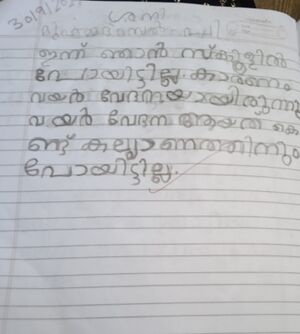 30/9/
ശനി
ഇന്ന് ഞാൻ സ്കൂളിൽ
പോയിട്ടില്ല. കാരണം
വയർ വേദനയായിരുന്നു
വയർ വേദന ആയത് കൊ
ണ്ട് കല്യാണത്തിനും
പോയിട്ടില്ല.